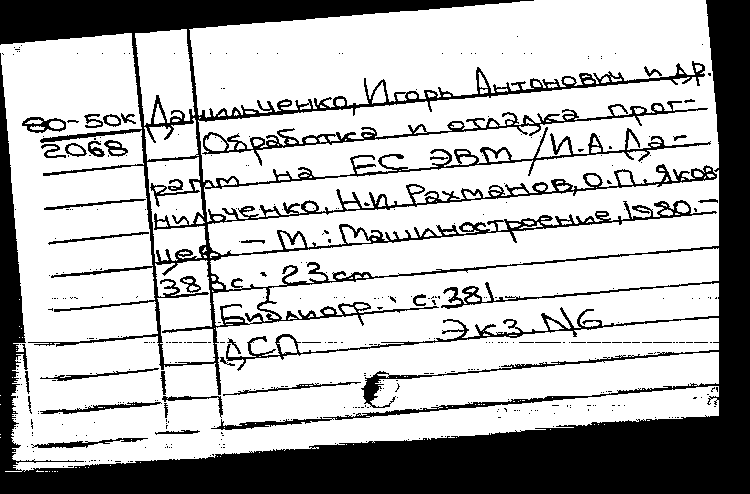 80-50к Данильченко, Игорь Антонович и др.
2068 Обработка и отладка прог-
рамм на ЕС ЭВМ / И.А. Да-
нильченко, Н.И. Рахманов, О.П. Яков-
цев. – М.: Машиностроение, 1980. –
383 с.; 23 cm
Библиогр.: с. 381.
ДСП. Экз. N6